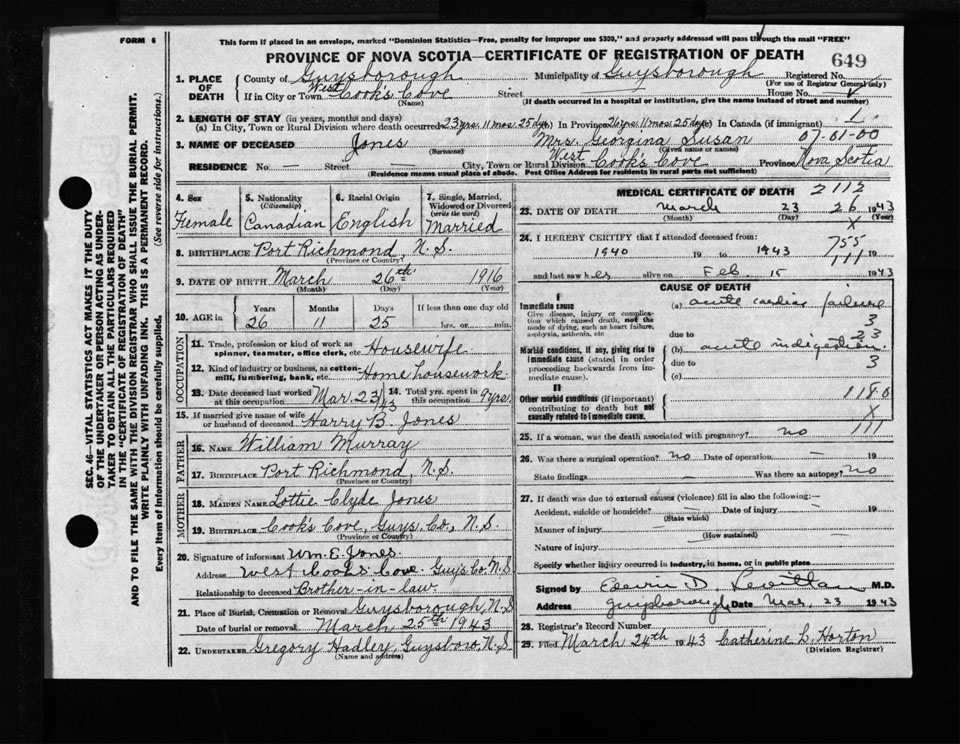 FORM 6
This form if placed in an envelope, marked "Dominion Statistics—Free, penalty for improper use $300," and properly addressed will pass through the mail "FREE"
PROVINCE OF NOVA SCOTIA—CERTIFICATE OF REGISTRATION OF DEATH
649
1. PLACE OF DEATH County of Guysborough Municipality of Guysborough Registered No.
(For use of Registrar General only)
If in City or Town West Cook's Cove Street House No.
(Name) (If death occurred in a hospital or institution, give the name instead of street and number)
2. LENGTH OF STAY (in years, months and days)
(a) In City, Town or Rural Division where death occurred 23 yrs. 11 mos. 25 dys (b) In Province 26 yrs. 11 mos. 25 dys (c) In Canada (if immigrant)
07-01-00
3. NAME OF DECEASED Jones Mrs. Georgina Susan
(Surname) (Given name or names)
RESIDENCE No. Street City, Town or Rural Division West Cook's Cove Province Nova Scotia
(Residence means usual place of abode. Post Office Address for residents in rural parts not sufficient)
SEC. 46—VITAL STATISTICS ACT MAKES IT THE DUTY
OF THE UNDERTAKER OR PERSON ACTING AS UNDER-
TAKER TO OBTAIN ALL THE PARTICULARS REQUIRED
IN THE "CERTIFICATE OF REGISTRATION OF DEATH"
AND TO FILE THE SAME WITH THE DIVISION REGISTRAR WHO SHALL ISSUE THE BURIAL PERMIT.
WRITE PLAINLY WITH UNFADING INK. THIS IS A PERMANENT RECORD.
Every item of Information should be carefully supplied. (See reverse side for instructions.)
4. Sex 5. Nationality (Citizenship) 6. Racial Origin 7. Single, Married, Widowed or Divorced (write the word)
Female Canadian English Married
8. BIRTHPLACE Port Richmond, N.S.
(Province or Country)
9. DATE OF BIRTH March 26th 1916
(Month) (Day) (Year)
10. AGE in Years Months Days If less than one day old
26 11 25 hrs. or min.
OCCUPATION
11. Trade, profession or kind of work as spinner, teamster, office clerk, etc. Housewife
12. Kind of industry or business, as cotton-mill, lumbering, bank, etc. Home housework
13. Date deceased last worked at this occupation Mar. 23/43 14. Total yrs. spent in this occupation 9 yrs.
15. If married give name of wife or husband of deceased Harry B. Jones
FATHER
16. NAME William Murray
17. BIRTHPLACE Port Richmond, N.S.
(Province or Country)
MOTHER
18. MAIDEN NAME Lottie Clyde Jones
19. BIRTHPLACE Cook's Cove, Guys. Co., N.S.
(Province or Country)
20. Signature of informant Wm. E. Jones
Address West Cook's Cove Guys. Co. N.S.
Relationship to deceased Brother-in-law
21. Place of Burial, Cremation or Removal Guysborough, N.S.
Date of burial or removal March 25th 1943
22. UNDERTAKER Gregory Hadley, Guysboro, N.S.
(Name and address)
MEDICAL CERTIFICATE OF DEATH 2112
23. DATE OF DEATH March 23 26 1943
(Month) (Day) (Year)
X
24. I HEREBY CERTIFY that I attended deceased from: 755
1940 19 to 1943 19
111
and last saw her alive on Feb. 15 1943
CAUSE OF DEATH
I
Immediate cause (a) acute cardiac failure
Give disease, injury or complication which caused death, not the mode of dying, such as heart failure, asphyxia, asthenia, etc.
3
due to 23
Morbid conditions, if any, giving rise to immediate cause (stated in order proceeding backwards from immediate cause).
(b) acute indigestion
due to 3
(c)
II
Other morbid conditions (if important) contributing to death but not causally related to immediate cause.
1180
X
111
25. If a woman, was the death associated with pregnancy? no
26. Was there a surgical operation? no Date of operation — 19
State findings — Was there an autopsy? no
27. If death was due to external causes (violence) fill in also the following:—
Accident, suicide or homicide? — Date of injury — 19
(State which)
Manner of injury
(How sustained)
Nature of injury
Specify whether injury occurred in industry, in home, or in public place
Signed by M.D.
Address Guysborough Date Mar. 23 1943
28. Registrar's Record Number
29. Filed March 24th 1943 Catherine L. Horton
(Division Registrar)